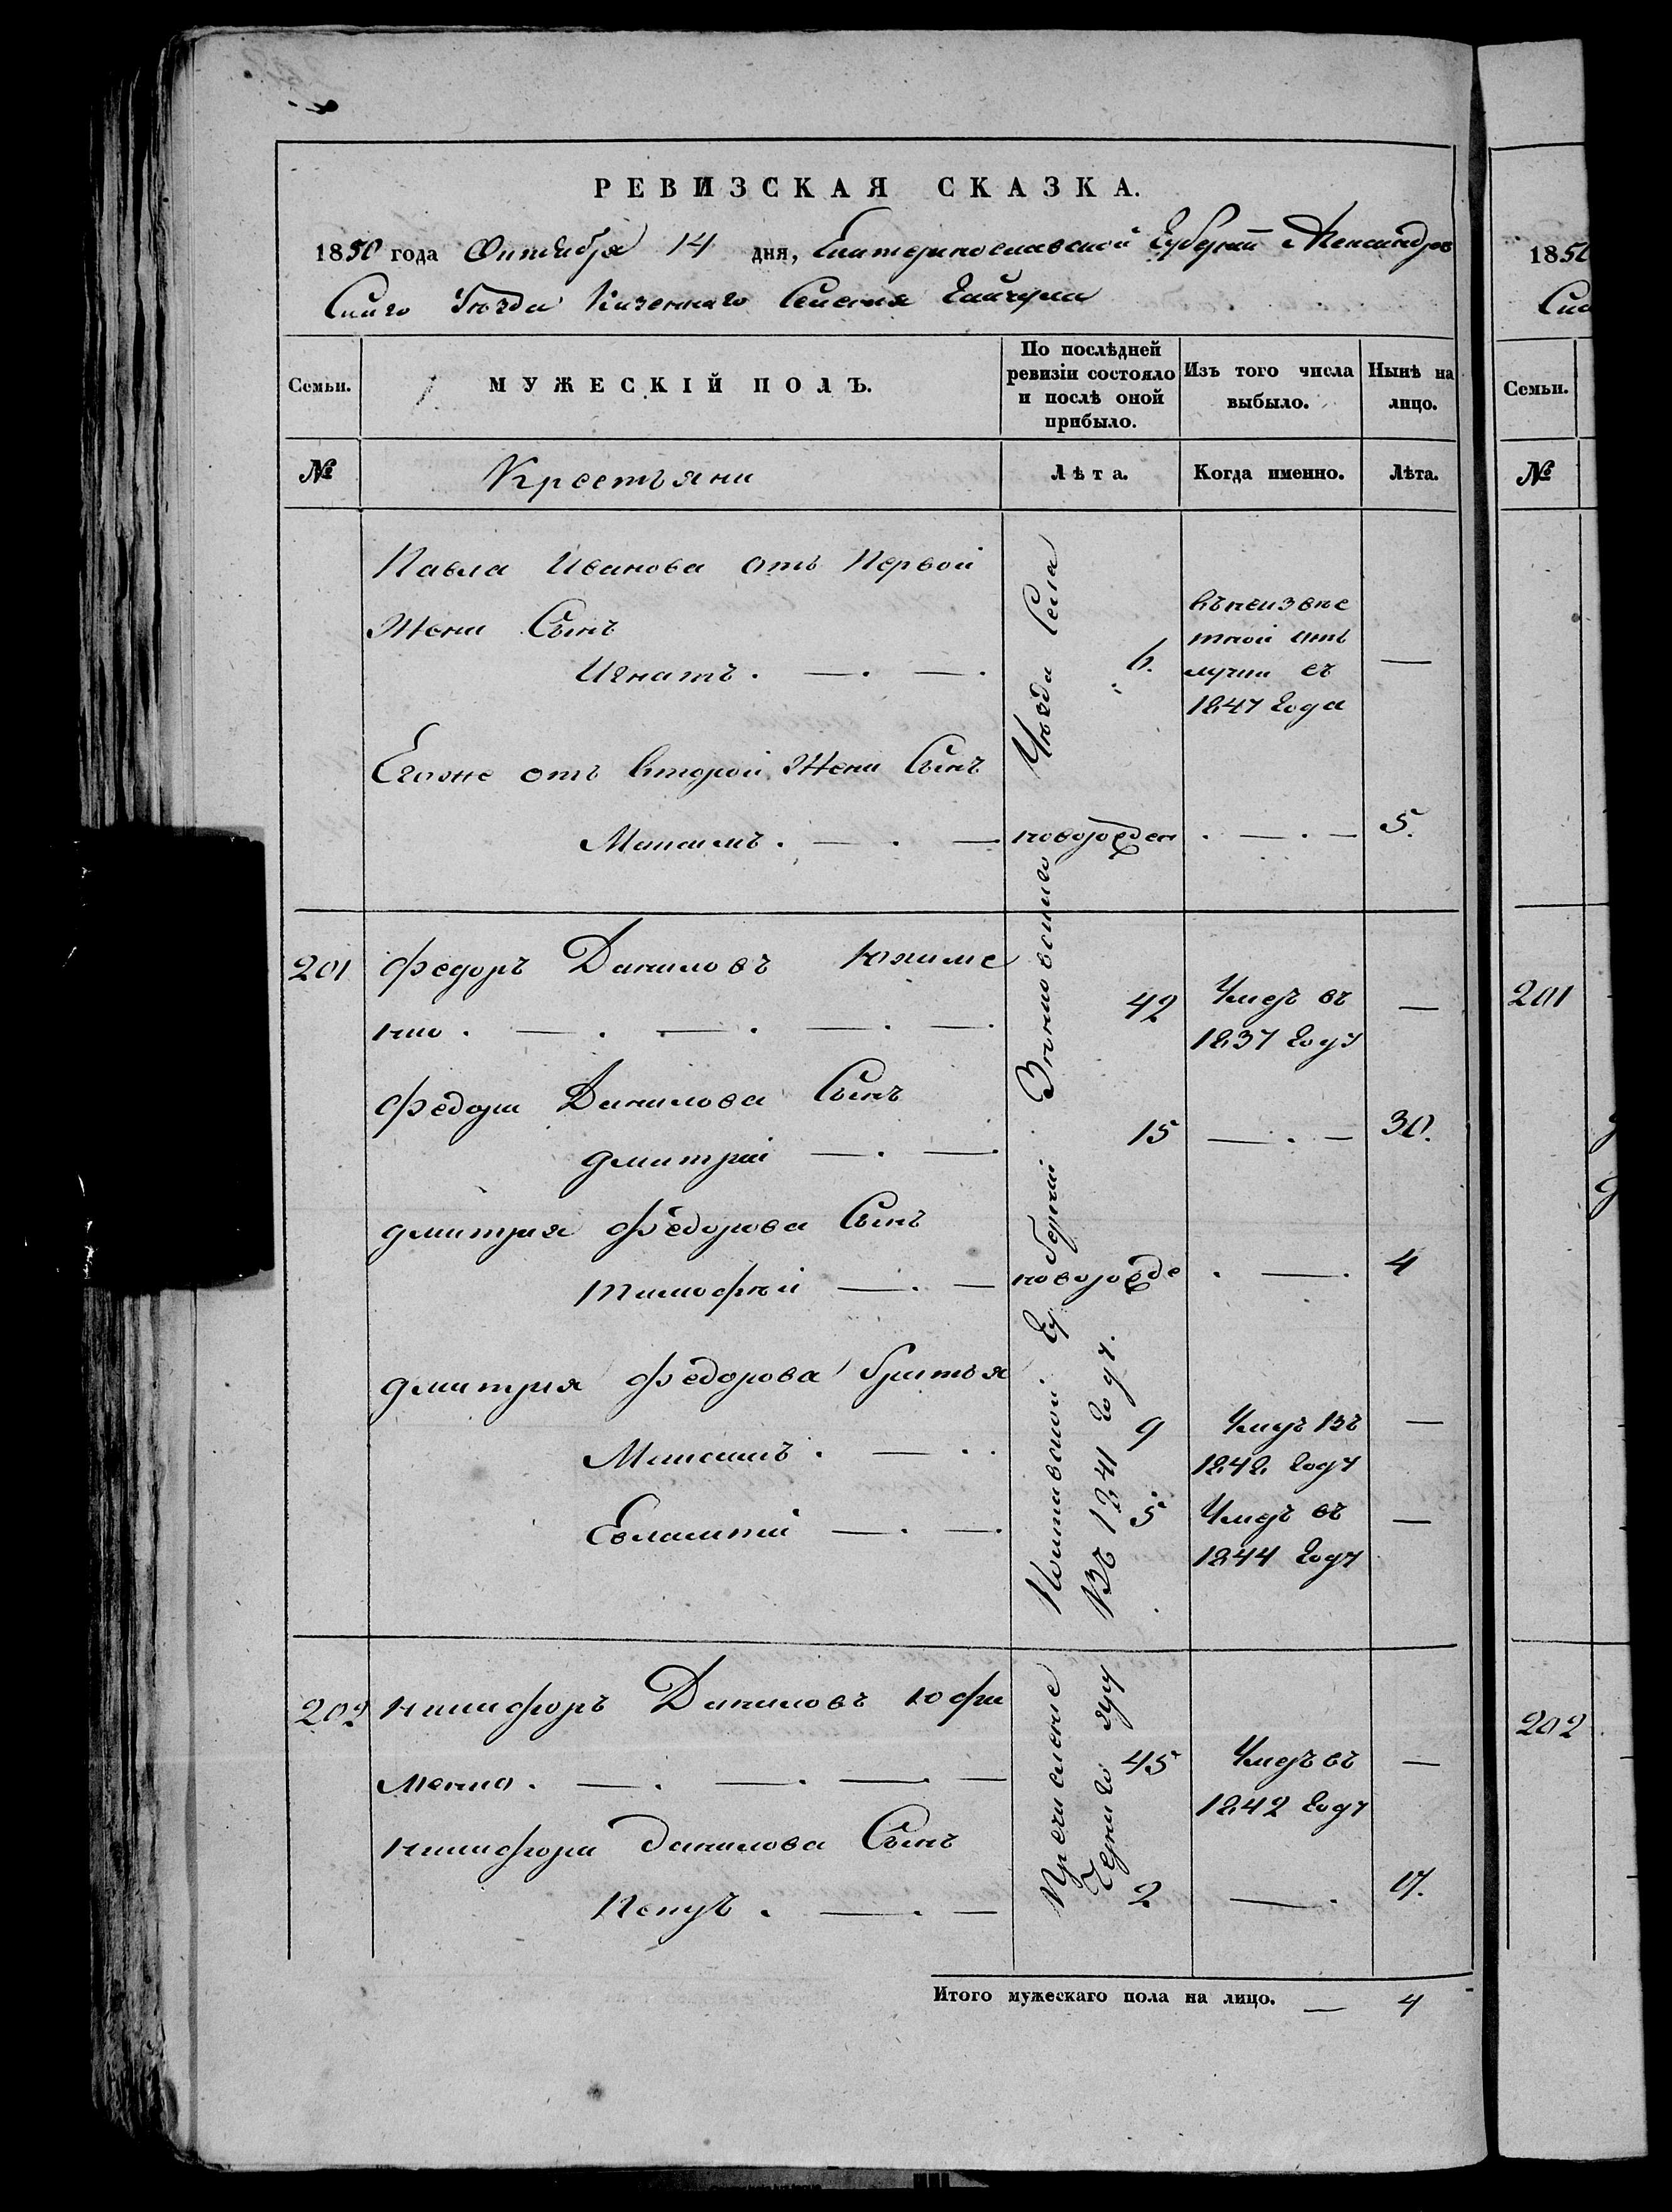 РЕВИЗСКАЯ СКАЗКА.
1850 года Октября 14 дня, Екатеринославской Губерніи Александров
скаго Уѣзда Казеннаго Селенія Гайчула
Семьи.
МУЖЕСКІЙ ПОЛЪ.
По послѣдней ревизіи состояло и послѣ оной прибыло.
Изъ того числа выбыло.
Нынѣ на лицо.
№
Крестьяни
Лѣта.
Когда именно.
Лѣта.
Павла Иванова отъ Первой
Жени Сынъ
Игнатъ. — . — . 6. —
въ неизвес
тной от
лучки съ
1847 Года
Егоже отъ второй Жени Сынъ
Максимъ. — . — новорожден . — . — 5.
201 Федоръ Даниловъ Юхиме
нко . — . — . — . — . 42 Умеръ въ —
1837 Году
Федора Данилова Сынъ
Дмитрій — . — . 15 — . — 30.
Дмитрія Федорова Сынъ
Тимофѣй — . — новорожде . — . 4
Дмитрія Федорова братья
Максимъ . — . . 9 Умеръ Въ —
1842 Году
Евлампій — . — . 5 Умеръ въ —
1844 Году
202 Никифоръ Даниловъ Юфи
менко . — . — . — . — 45 Умеръ въ —
1842 Году
Никифора Данилова Сынъ
Карпъ . — . — 2 — . 17.
Пречислене Полтавской Губерніи Зѣньковскаго Уѣзда Села
Въ 1841 Году.
Итого мужескаго пола на лицо. — 4
1850
Ска
Семьи.
№
201
202